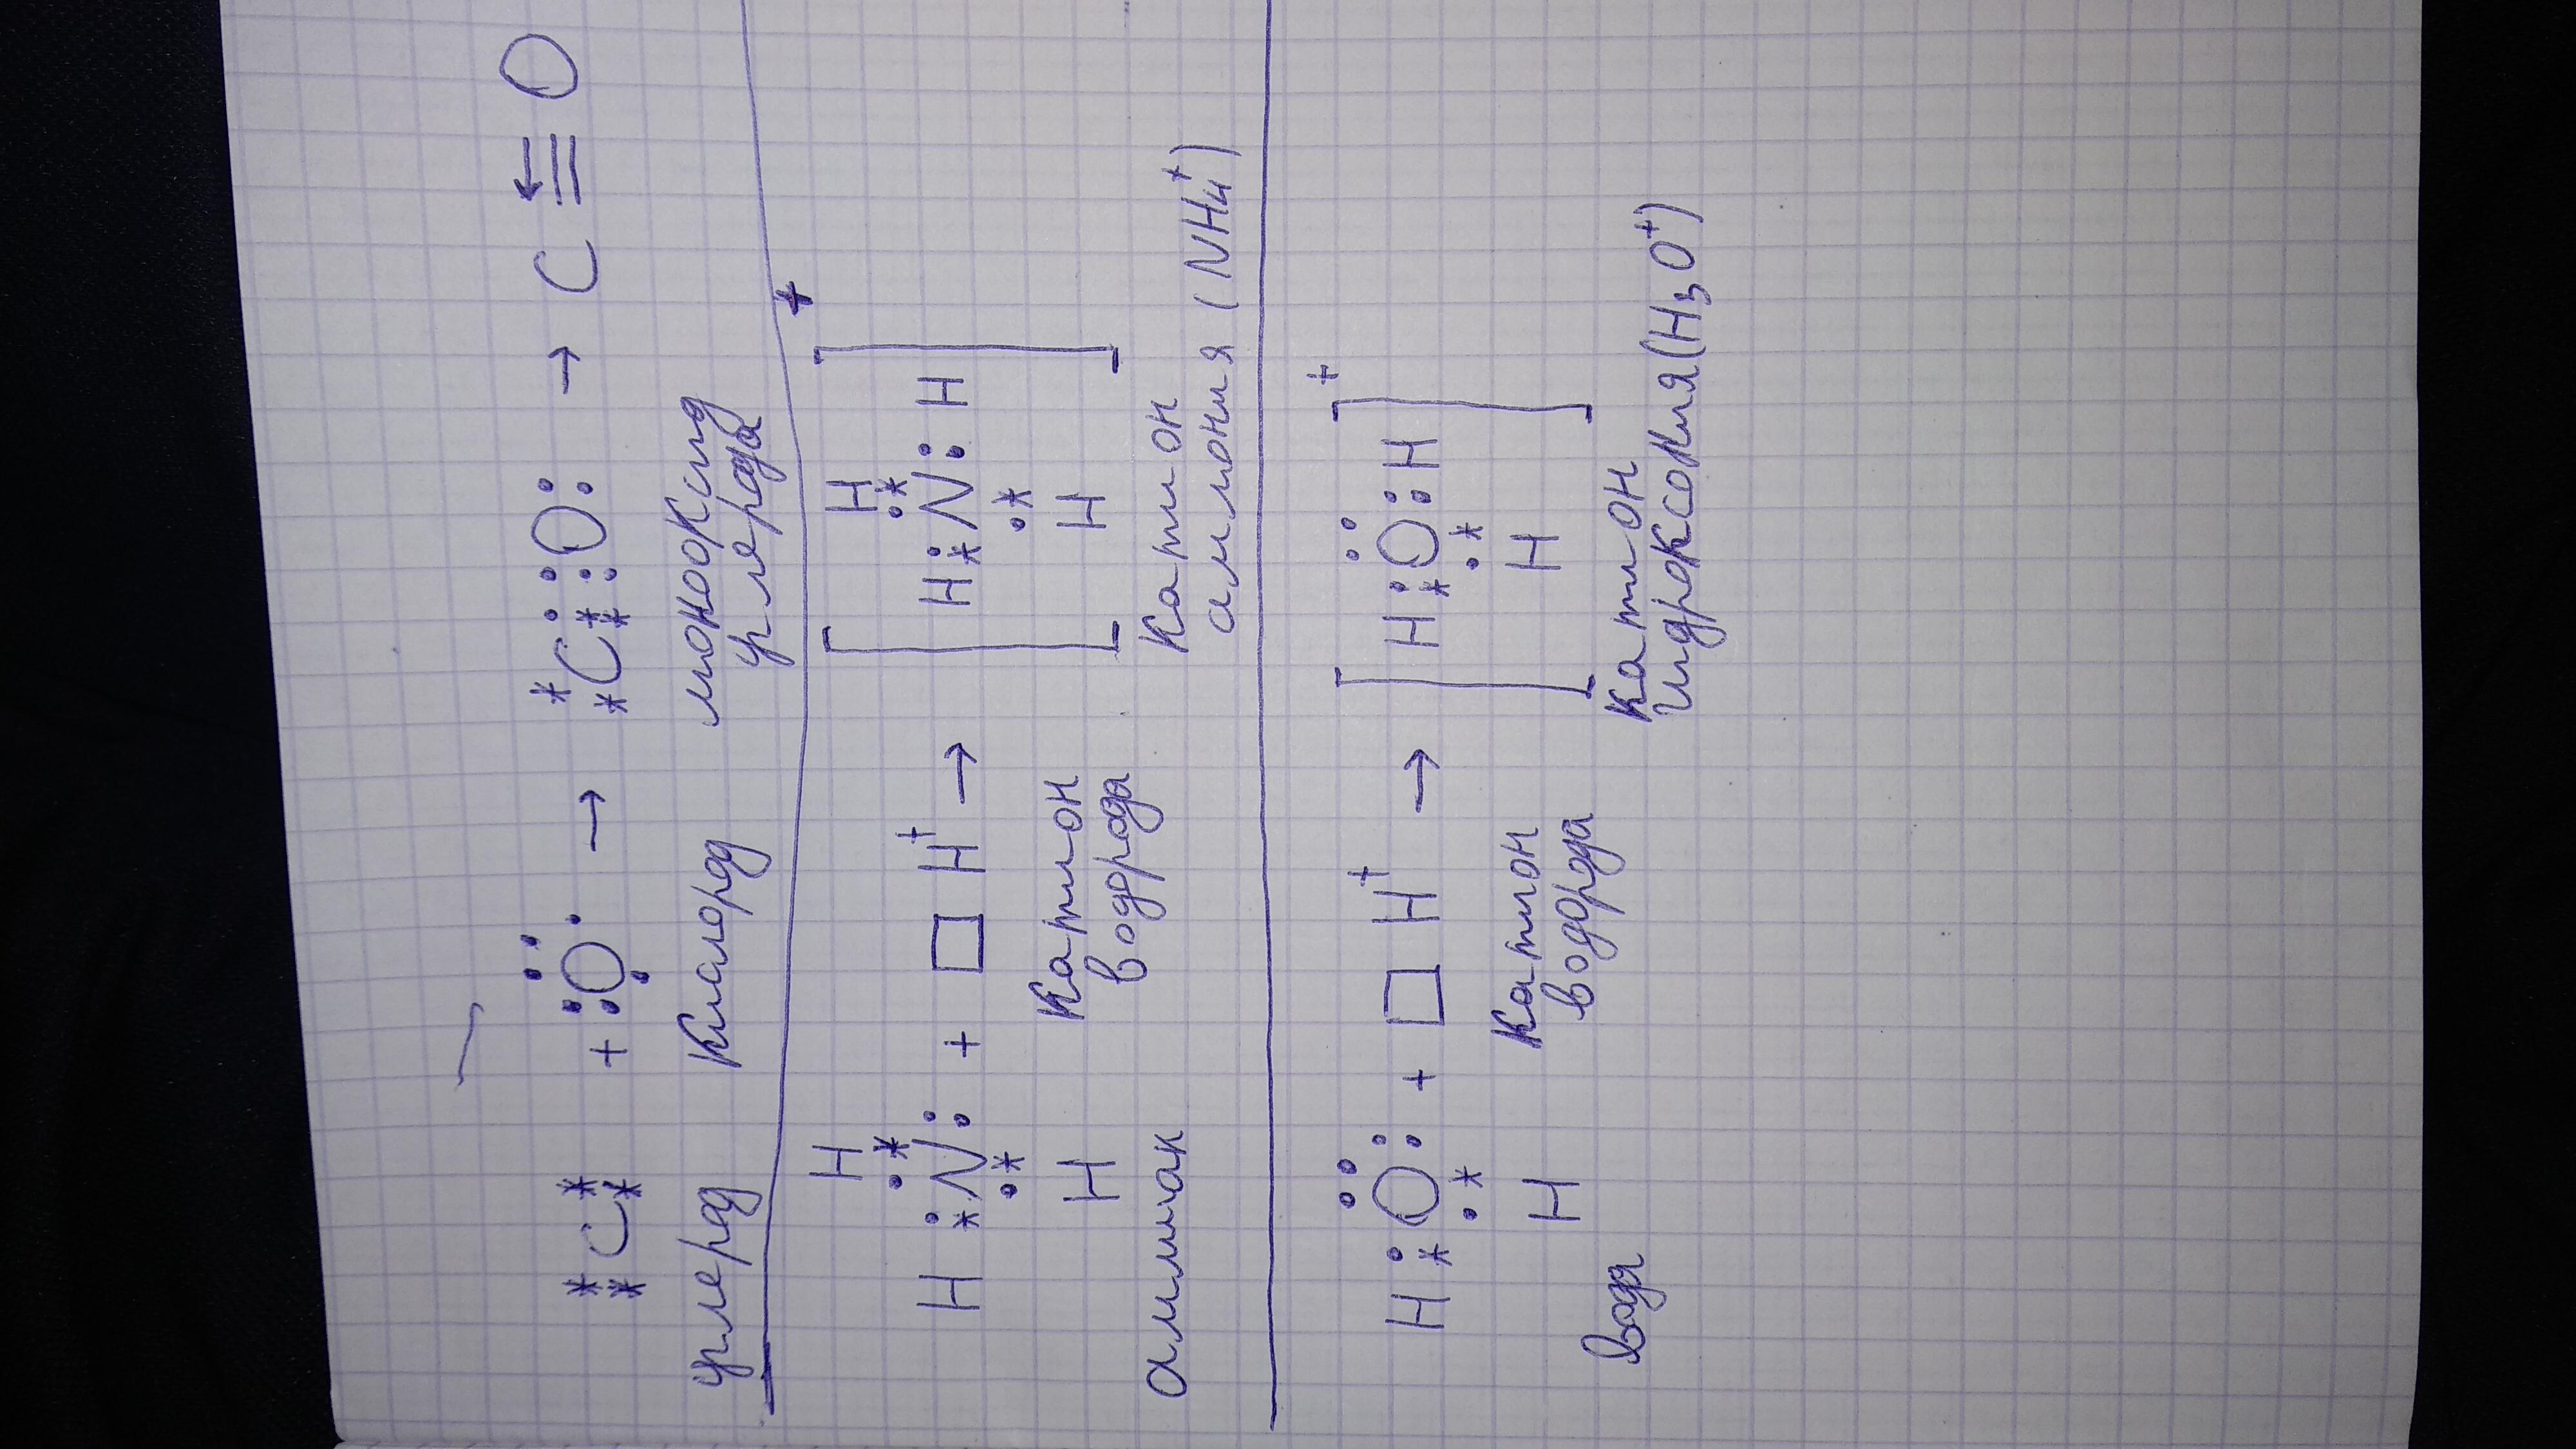 *
* C *
* + :O: · → *
* C :: O : → C ≡ O
углерод Кислород монооксид
углерода
H H +
H : N : + □ H⁺ → [ H : N : H ]
H H
аммиак Катион
водорода Катион
амония (NH₄⁺)
H : O : + □ H⁺ → [ H : O : H ]⁺
H H
вода Катион
водорода Катион
гидроксония (H₃O⁺)